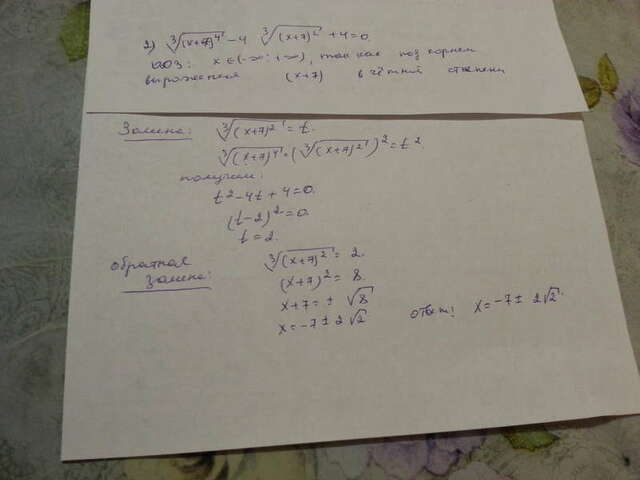 2) ∛(x+7)⁴ - 4 ∛(x+7)² + 4 = 0
ОДЗ: x ∈ (-∞; +∞), так как под корнем
выражение (x+7) в чётной степени
Замена: ∛(x+7)² = t.
∛(x+7)⁴ = (∛(x+7)²)² = t².
получаем:
t² - 4t + 4 = 0.
(t-2)² = 0.
t = 2.
Обратная замена: ∛(x+7)² = 2.
(x+7)² = 8.
x+7 = ± √8
x = -7 ± 2√2 ответ: x = -7 ± 2√2.